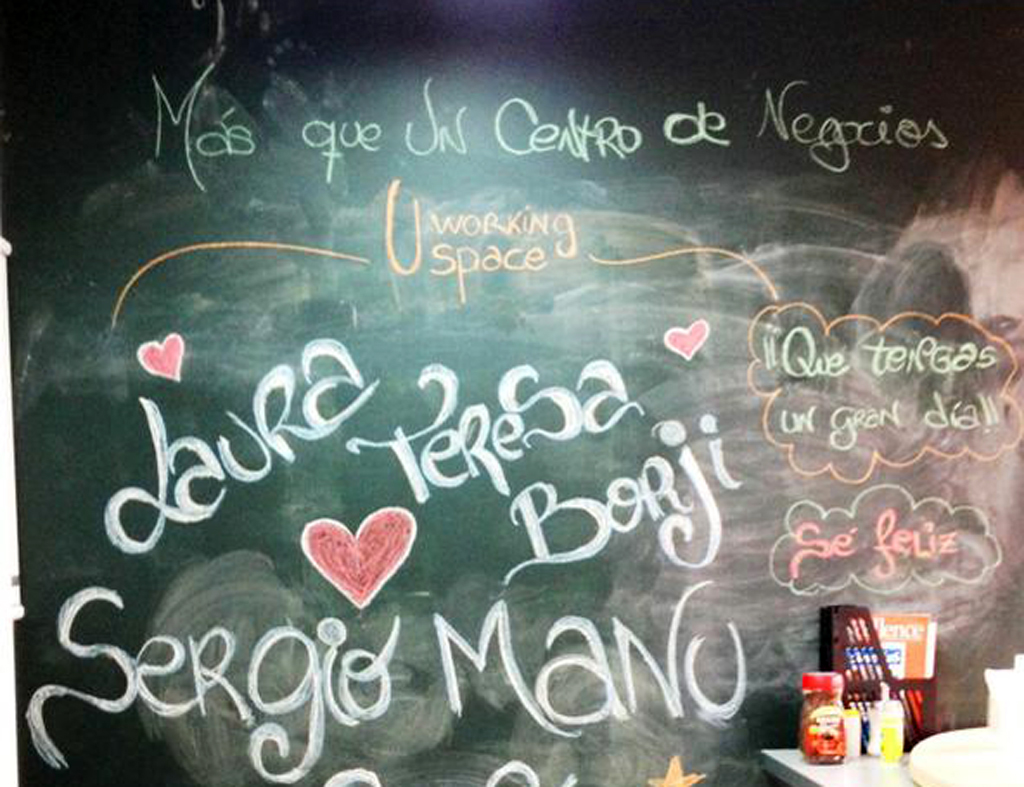 Más que Un Centro de Negocios
U working
space
Laura Teresa
Borji
Sergio Manu
¡¡Que tengas
un gran día!!
Sé feliz
lence